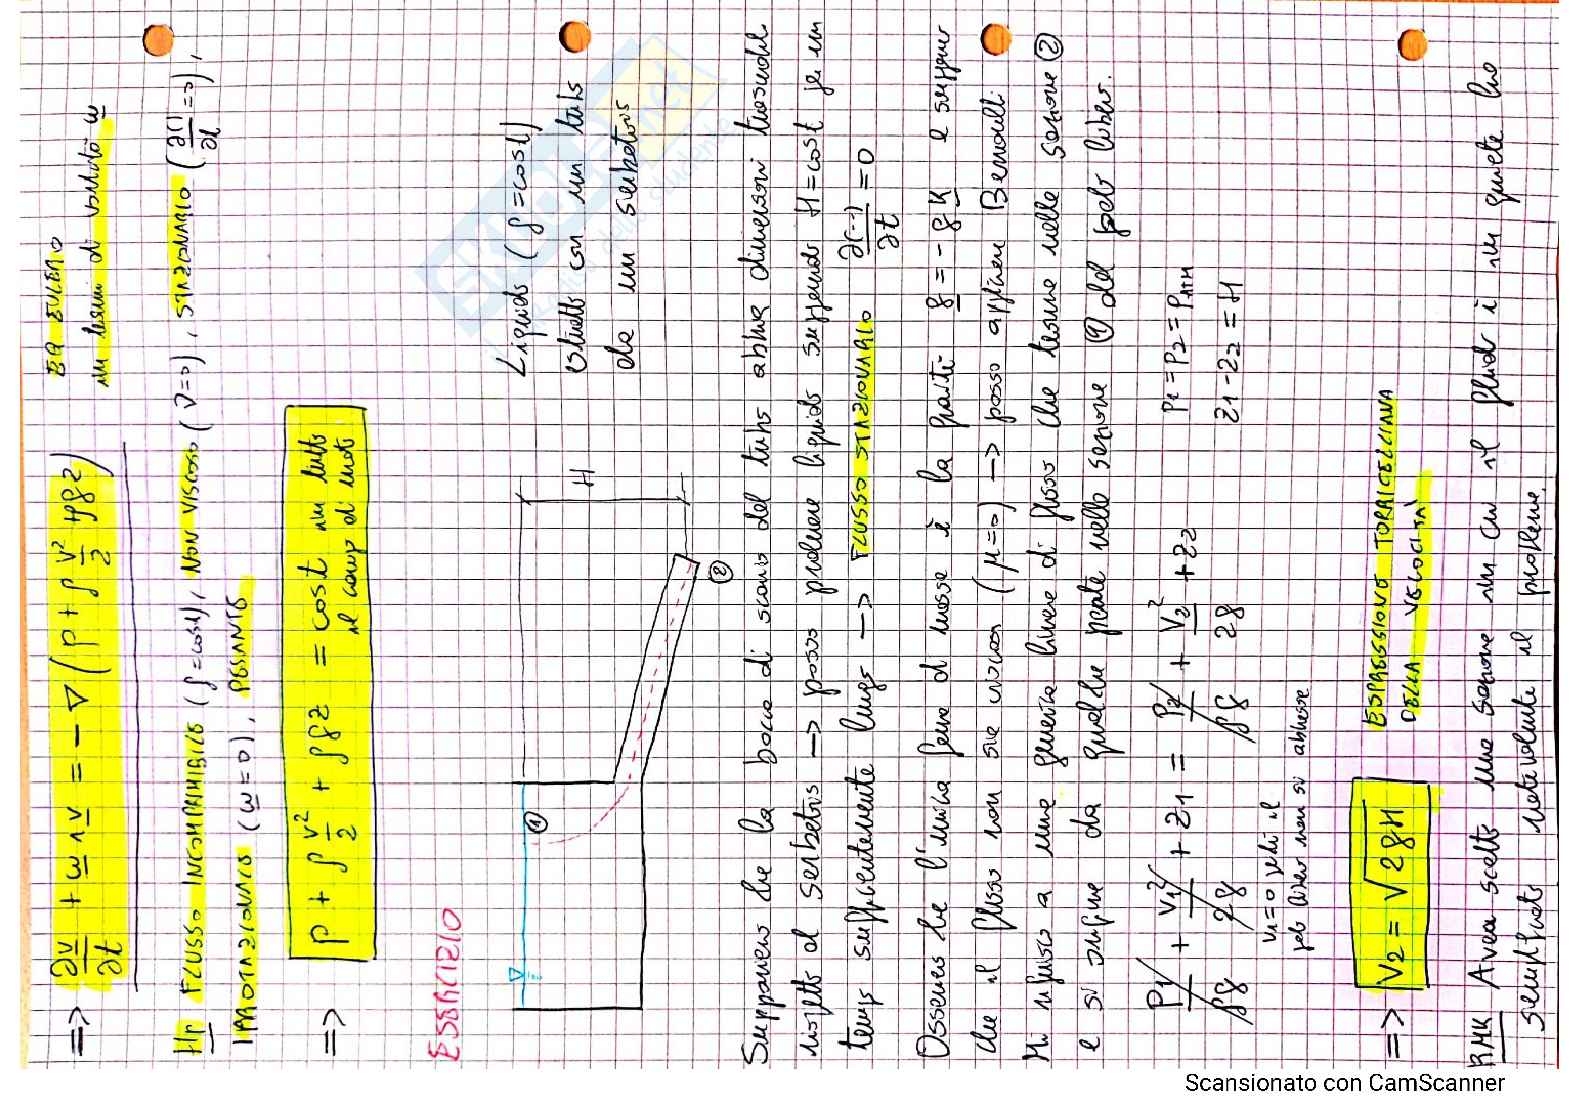 EQ EULERO
in termini di vorticità ω
=> ∂v/∂t + ω ∧ v = -∇(p + ρ v²/2 + ρgz)
Hp FLUSSO INCOMPRIMIBILE (ρ=cost), NON VISCOSO (ν=0), STAZIONARIO (∂()/∂t=0),
IRROTAZIONALE (ω=0), PESANTE
=> p + ρ v²/2 + ρgz = cost in tutto
il campo di moto
ESERCIZIO
Liquido (ρ=cost)
con un tubo
da un serbatoio
① H ②
Supponiamo che la bocca di scarico del tubo abbia dimensioni trascurabili
rispetto al serbatoio -> posso prelevare liquido supponendo H=cost per un
tempo sufficientemente lungo -> FLUSSO STAZIONARIO ∂(--)/∂t = 0
Osserviamo che l'unica forza di massa è la gravità g = -gk e supponiamo
che il flusso non sia viscoso (μ=0) -> posso applicare Bernoulli.
Mi riferisco a una generica linea di flusso che termina nella sezione ②
e si origina da qualche parte nella sezione ① del pelo libero.
P1/ρg + V1²/2g + Z1 = P2/ρg + V2²/2g + Z2
P1 = P2 = PATM
Z1 - Z2 = H
V1=0 perché il
pelo libero non si abbassa
=> V2 = √2gH
ESPRESSIONE TORRICELLIANA
DELLA VELOCITÀ
RMK Aver scelto una sezione in cui il fluido è in quiete ha
semplificato notevolmente il problema.
SKUOLA.net
Scansionato con CamScanner